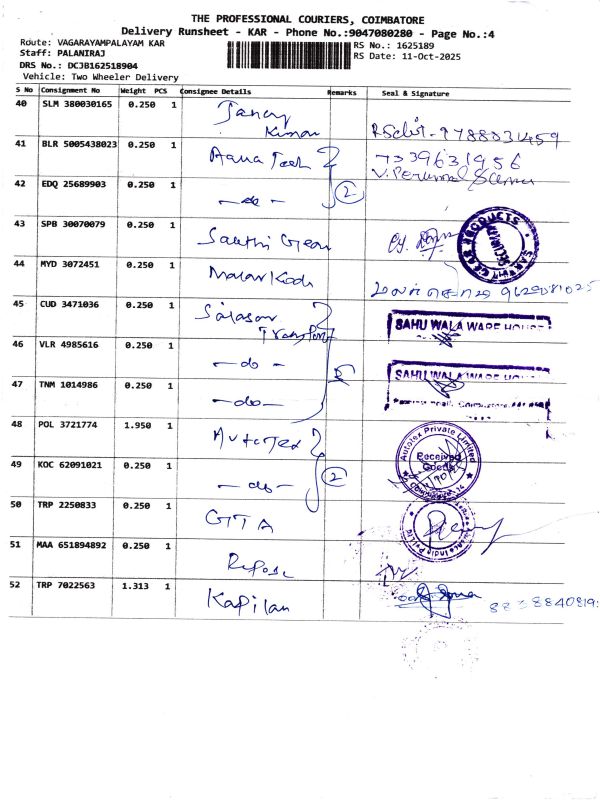 THE PROFESSIONAL COURIERS, COIMBATORE
Delivery Runsheet - KAR - Phone No.:9047080280 - Page No.:4
Route: VAGARAYAMPALAYAM KAR
RS No.: 1625189
Staff: PALANIRAJ
RS Date: 11-Oct-2025
DRS No.: DCJB162518904
Vehicle: Two Wheeler Delivery
S No Consignment No Weight PCS Consignee Details Remarks Seal & Signature
40 SLM 380030165 0.250 1
Kumar
41 BLR 5005438023 0.250 1
7339631956
V. Perumal
42 EDQ 25689903 0.250 1 -do- 2
43 SPB 30070079 0.250 1 Santhi Gear
SANTHI GEAR PRODUCTS
SECURITY
44 MYD 3072451 0.250 1 Malar Kodi
45 CUD 3471036 0.250 1 Salasar
Transport
SAHU WALA WARE HOUSE
46 VLR 4985616 0.250 1 -do-
SAHU WALA WARE HOUSE
47 TNM 1014986 0.250 1 -do-
48 POL 3721774 1.950 1 Autotex
Autotex Private Limited
Received
Goods
49 KOC 62091021 0.250 1 -do- 2
50 TRP 2250833 0.250 1 GTA
51 MAA 651894892 0.250 1 Repose
52 TRP 7022563 1.313 1 Kapilan